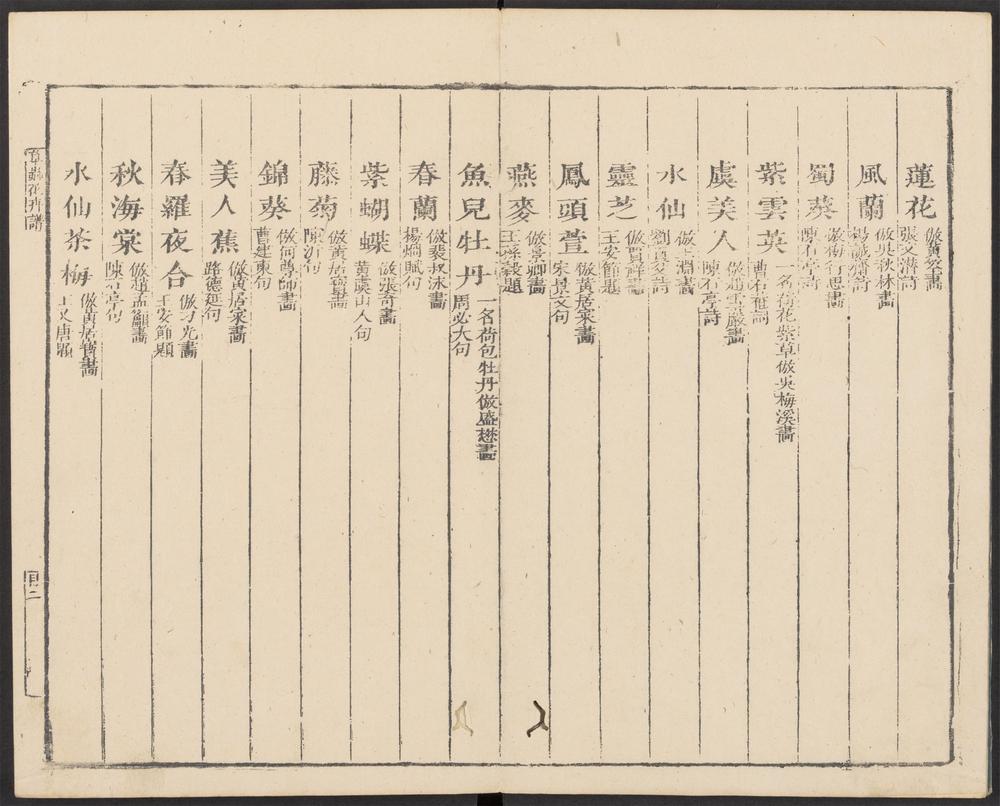 蓮花
倣黃筌畫
張文潛詩
風蘭
倣吳秋林畫
楊誠齋詩
蜀葵
行思畫
陳石亭詩
紫雲英
一名荷花紫草倣吳梅溪畫
曹石倉詞
虞美人
倣趙雪巖畫
陳石亭詩
水仙
倣淵畫
劉貢父詩
靈芝
倣賈祥畫
王安節題
鳳頭萱
倣黃居寀畫
宋景文句
燕麥
倣景卿畫
王孫穀題
魚兒牡丹
一名荷包牡丹倣盛懋畫
周必大句
春蘭
倣裴叔泳畫
楊烱賦句
紫蝴蝶
倣張奇畫
黃虞山人句
藤菊
倣黃居寶畫
陳沂句
錦葵
倣何尊師畫
曹建東句
美人蕉
倣黃居寀畫
路德延句
春羅夜合
倣刁光畫
王安節題
秋海棠
倣趙孟籲畫
陳石亭句
水仙茶梅
倣黃居寶畫
唐題
草蟲花卉譜
目二